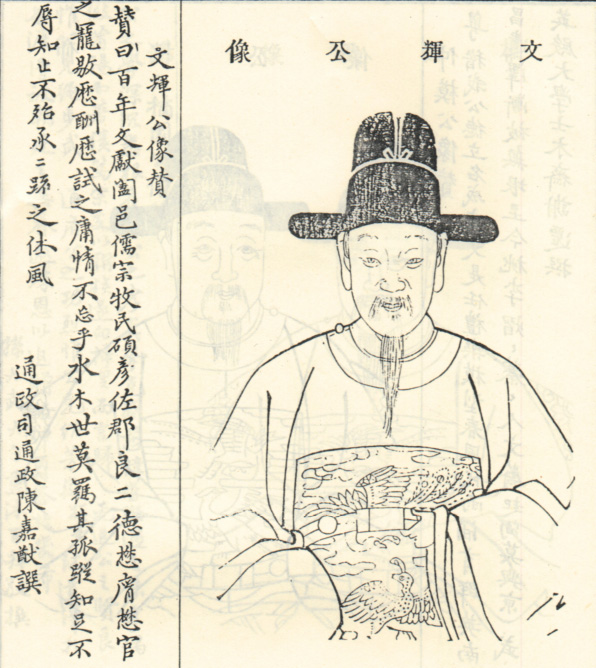 文輝公像
文輝公像贊
贊曰百年文獻闔邑儒宗牧民碩彥佐郡良二德懋膺懋官
之寵敭歷酬歷試之庸情不忘乎水木世莫羈其孤蹤知足不
辱知止不殆承二疏之休風
通政司通政陳嘉猷譔